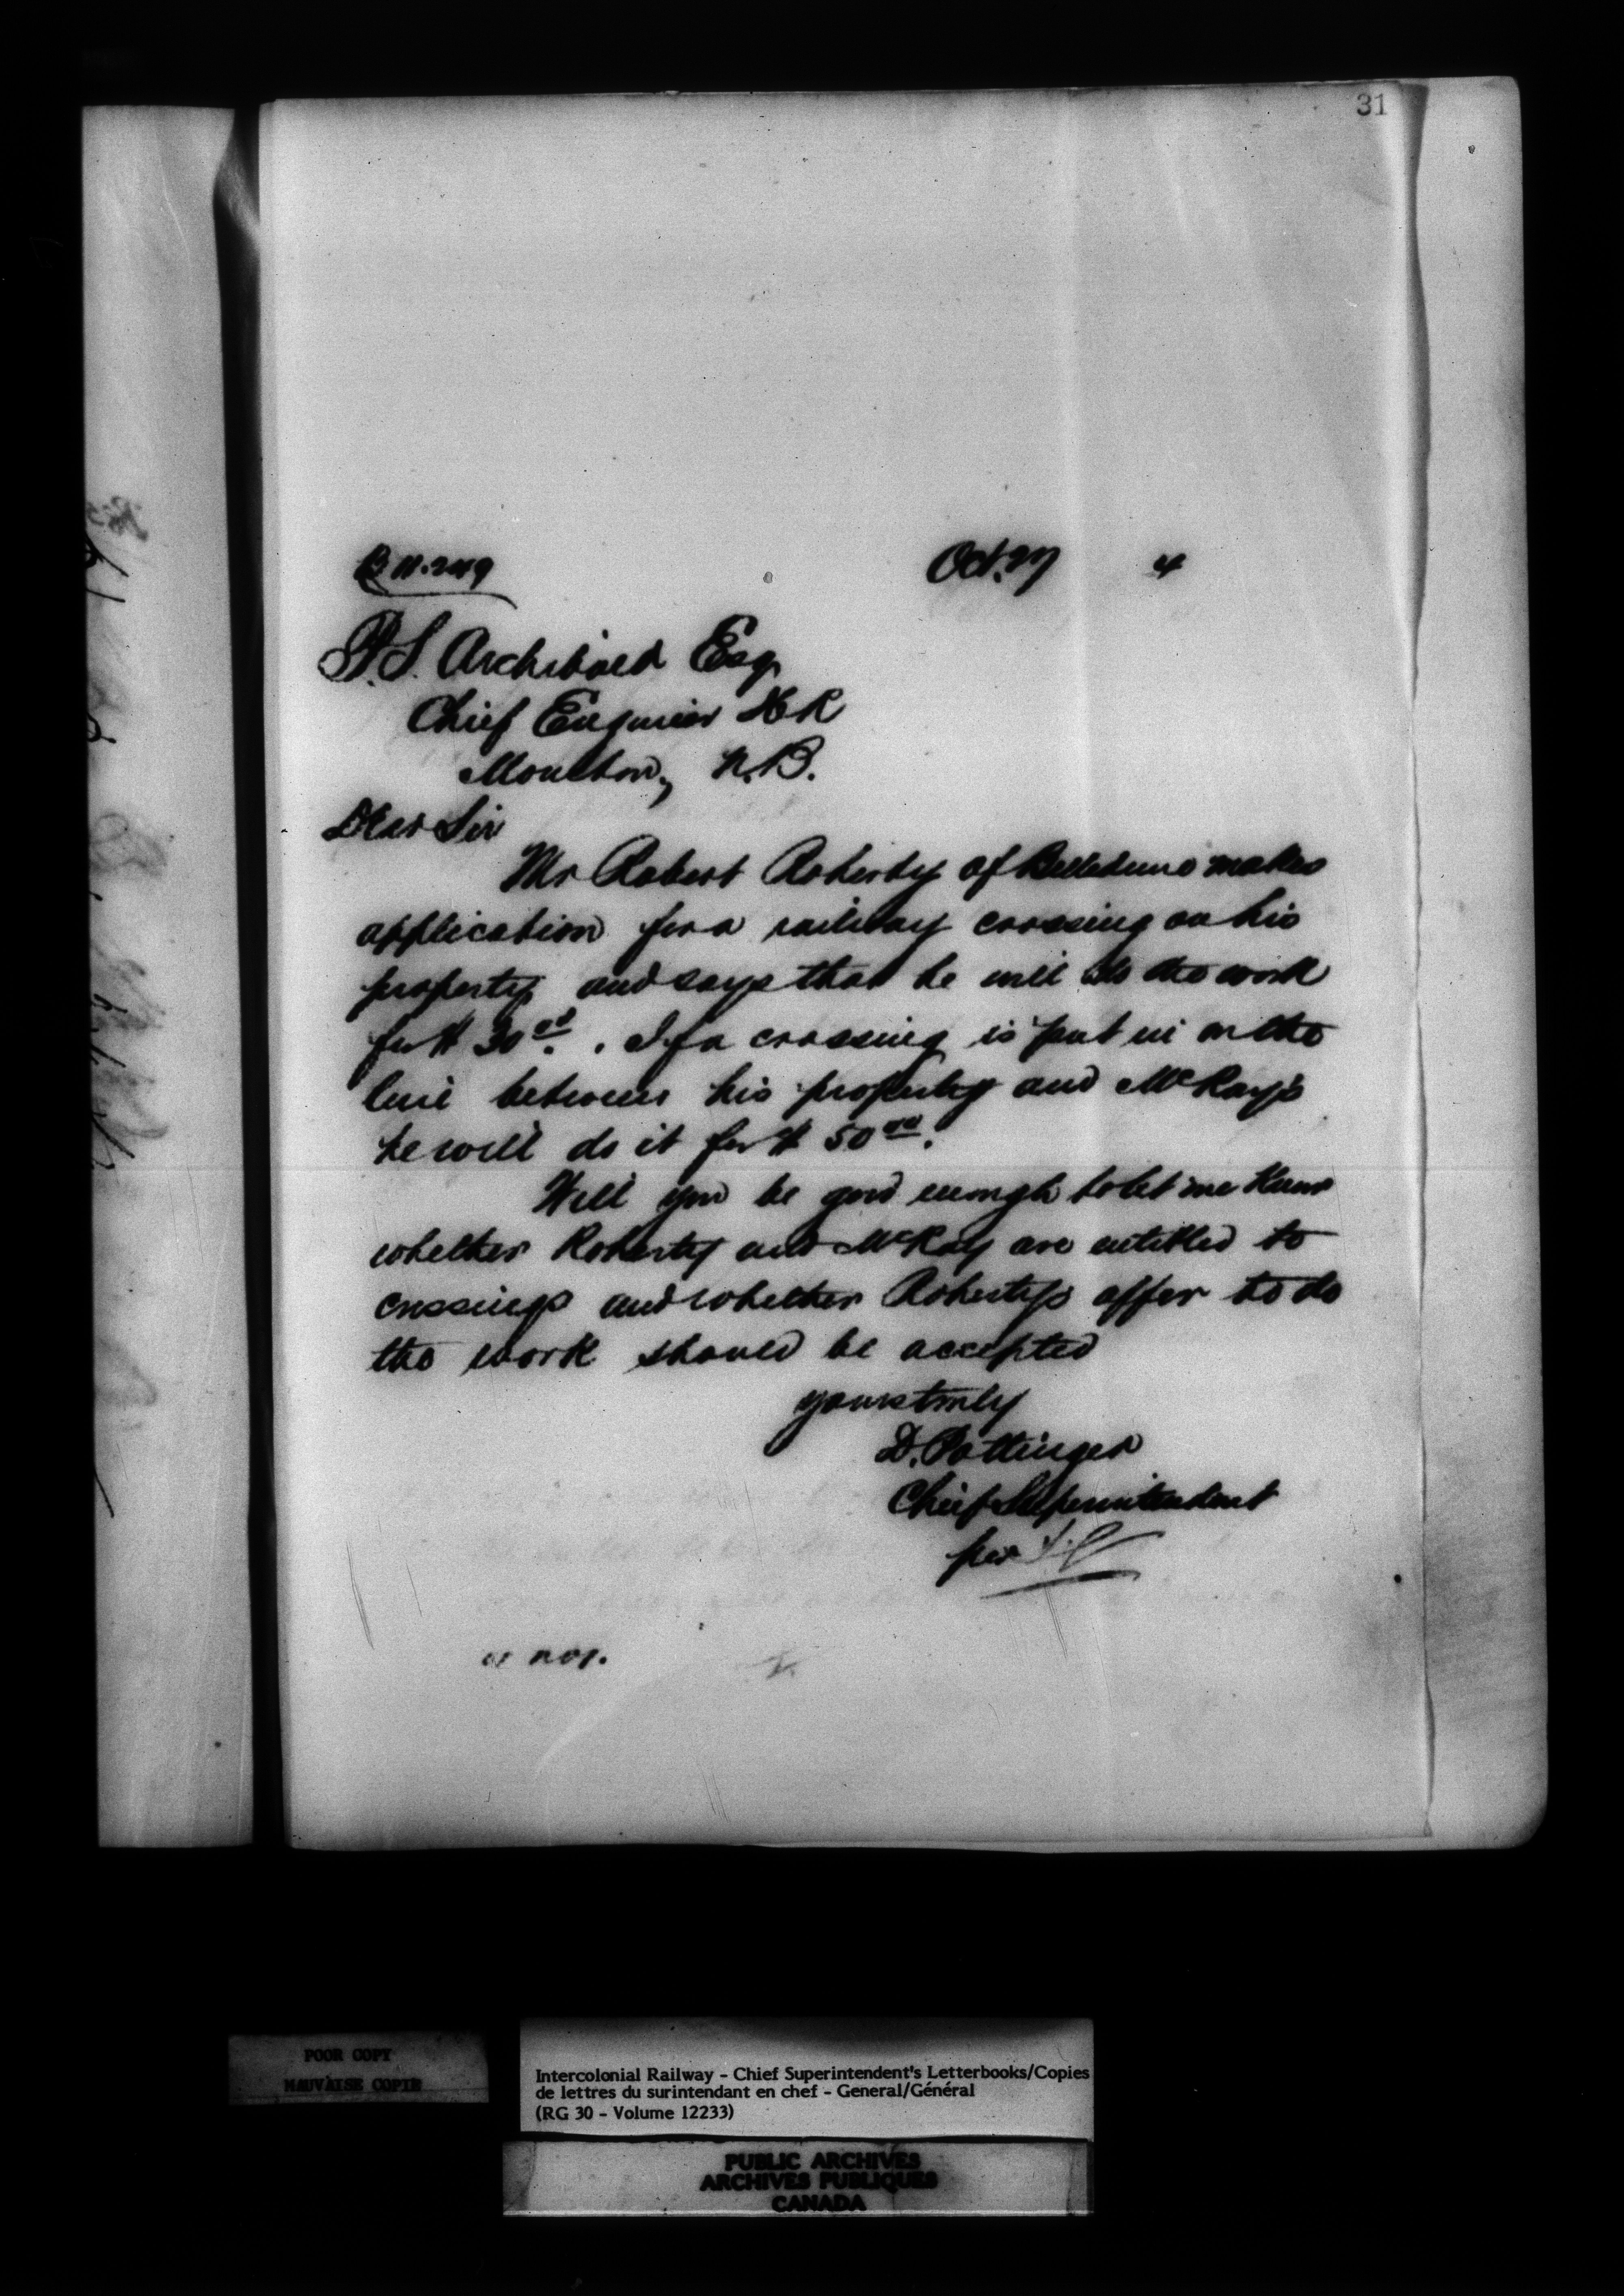 31
Oct. 27 4
P.S. Archibald Esq
Chief Engineer ICR
Moncton, N.B.
Dear Sir
Mr Robert Roherty of Belledune makes
application for a railway crossing on his
property and says that he will do the work
for $ 30.00. If a crossing is put in on the
line between his property and McKay's
he will do it for $ 50.00.
Will you be good enough to let me know
whether Roherty and McKay are entitled to
crossings and whether Roherty's offer to do
the work should be accepted
yours truly
D. Pottinger
Chief Superintendent
per
POOR COPY
MAUVAISE COPIE
Intercolonial Railway - Chief Superintendent's Letterbooks/Copies
de lettres du surintendant en chef - General/Général
(RG 30 - Volume 12233)
PUBLIC ARCHIVES
ARCHIVES PUBLIQUES
CANADA